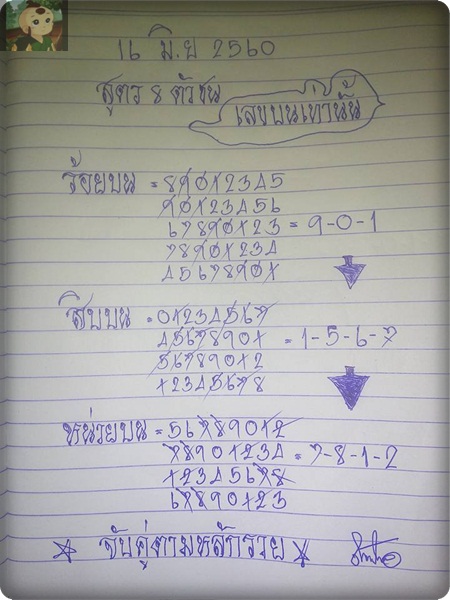 16 มิ.ย 2560
สูตร 8 ตัวชน
เลขบนเท่านั้น
ร้อยบน = 89012345
90123456
67890123 = 9-0-1
78901234
45678901
สิบบน = 01234567
45678901 = 1-5-6-7
56789012
12345678
หน่วยบน = 56789012
78901234 = 7-8-1-2
12345678
67890123
จับคู่ตามหลักรวย